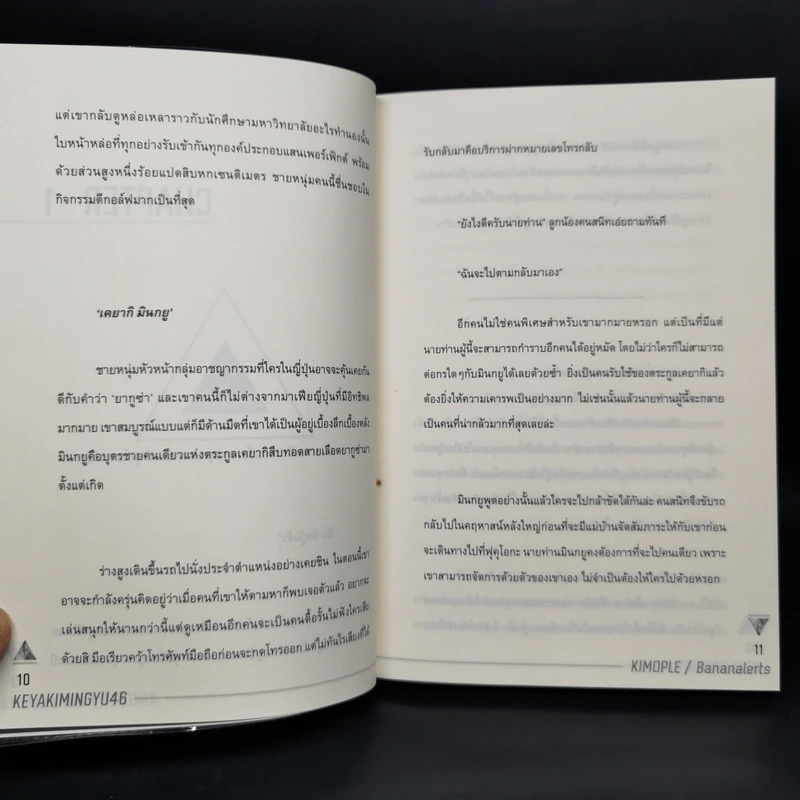 แต่เขากลับดูหล่อเหลาราวกับนักศึกษามหาวิทยาลัยอะไรทำนองนั้น
ใบหน้าหล่อที่ทุกอย่างรับเข้ากันทุกองค์ประกอบแสนเพอร์เฟ็กต์ พร้อม
ด้วยส่วนสูงหนึ่งร้อยแปดสิบหกเซนติเมตร ชายหนุ่มคนนี้ชื่นชอบใน
กิจกรรมตีกอล์ฟมากเป็นที่สุด
'เคยากิ มินกยู'
ชายหนุ่มหัวหน้ากลุ่มอาชญากรรมที่ใครในญี่ปุ่นอาจจะคุ้นเคยกัน
ดีกับคำว่า 'ยากูซ่า' และเขาคนนี้ก็ไม่ต่างจากมาเฟียญี่ปุ่นที่มีอิทธิพล
มากมาย เขาสมบูรณ์แบบแต่ก็มีด้านมืดที่เขาได้เป็นผู้อยู่เบื้องลึกเบื้องหลัง
มินกยูคือบุตรชายคนเดียวแห่งตระกูลเคยากิสืบทอดสายเลือดยากูซ่ามา
ตั้งแต่เกิด
ร่างสูงเดินขึ้นรถไปนั่งประจำตำแหน่งอย่างเคยชิน ในตอนนี้เขา
อาจจะกำลังครุ่นคิดอยู่ว่าเมื่อคนที่เขาให้ตามหาก็พบเจอตัวแล้ว อยากจะ
เล่นสนุกให้นานกว่านี้แต่ดูเหมือนอีกคนจะเป็นคนดื้อรั้นไม่ฟังใครเสีย
ด้วยสิ มือเรียวคว้าโทรศัพท์มือถือก่อนจะกดโทรออก แต่ไม่ทันไรเสียงที่ได้
10
KEYAKIMINGYU46
รับกลับมาคือบริการฝากหมายเลขโทรกลับ
"ยังไงดีครับนายท่าน" ลูกน้องคนสนิทเอ่ยถามทันที
"ฉันจะไปตามกลับมาเอง"
อีกคนไม่ใช่คนพิเศษสำหรับเขามากมายหรอก แต่เป็นที่มีแต่
นายท่านผู้นี้จะสามารถกำราบอีกคนได้อยู่หมัด โดยไม่ว่าใครก็ไม่สามารถ
ต่อกรใดๆกับมินกยูได้เลยด้วยซ้ำ ยิ่งเป็นคนรับใช้ของตระกูลเคยากิแล้ว
ต้องยิ่งให้ความเคารพเป็นอย่างมาก ไม่เช่นนั้นแล้วนายท่านผู้นี้จะกลาย
เป็นคนที่น่ากลัวมากที่สุดเลยล่ะ
มินกยูพูดอย่างนั้นแล้วใครจะไปกล้าขัดได้กันล่ะ คนสนิทจึงขับรถ
กลับไปในคฤหาสน์หลังใหญ่ก่อนที่จะมีแม่บ้านจัดสัมภาระให้กับเขาก่อน
จะเดินทางไปที่ฟุคุโอกะ นายท่านมินกยูคงต้องการที่จะไปคนเดียว เพราะ
เขาสามารถจัดการด้วยตัวของเขาเอง ไม่จำเป็นต้องให้ใครไปด้วยหรอก
11
KIMOPLE / Bananalerts